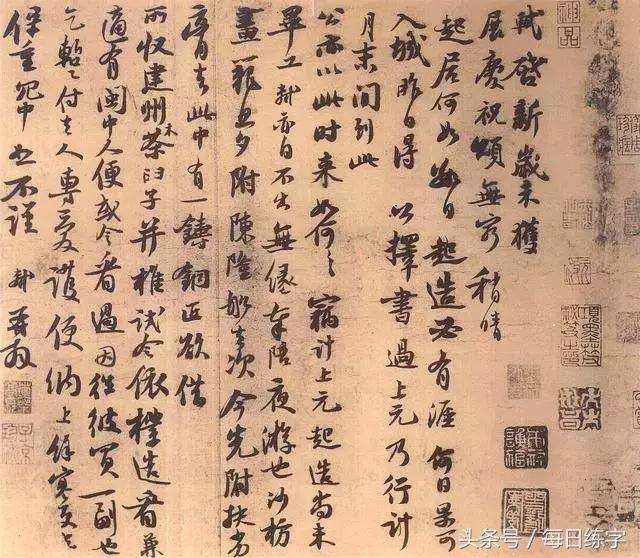 軾啓新歲未獲
展慶祝頌無窮稍晴
起居何如數日起造必有涯何日果可
入城昨日得公擇書過上元乃行計
月末間到此
公亦以此時来如何々竊計上元起造尚未
畢工軾亦自不出無緣奉陪夜游也沙枋
畫籠旦夕附陳隆舩去次今先附扶劣
膏去此中有一鑄銅匠欲借
所收建州木茶臼子并椎試令依樣造看兼
適有閩中人便或令看過因往彼買一副也
乞蹔付去人專愛護便納上餘寒更乞
保重冗中恕不謹軾再拜
神品
头条号 / 每日练字